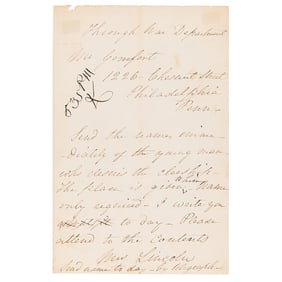 Through War Department
Mr Gomfort
1226 - Chesnut Street
Philadelphia
Penn -
Send the names imme
- diately of the young man
who desires the clerkship -
The place is given - Name
only required - I write you
to day - Please
attend to the Contents
Mrs Lincoln
Send name to day - by telegraph -